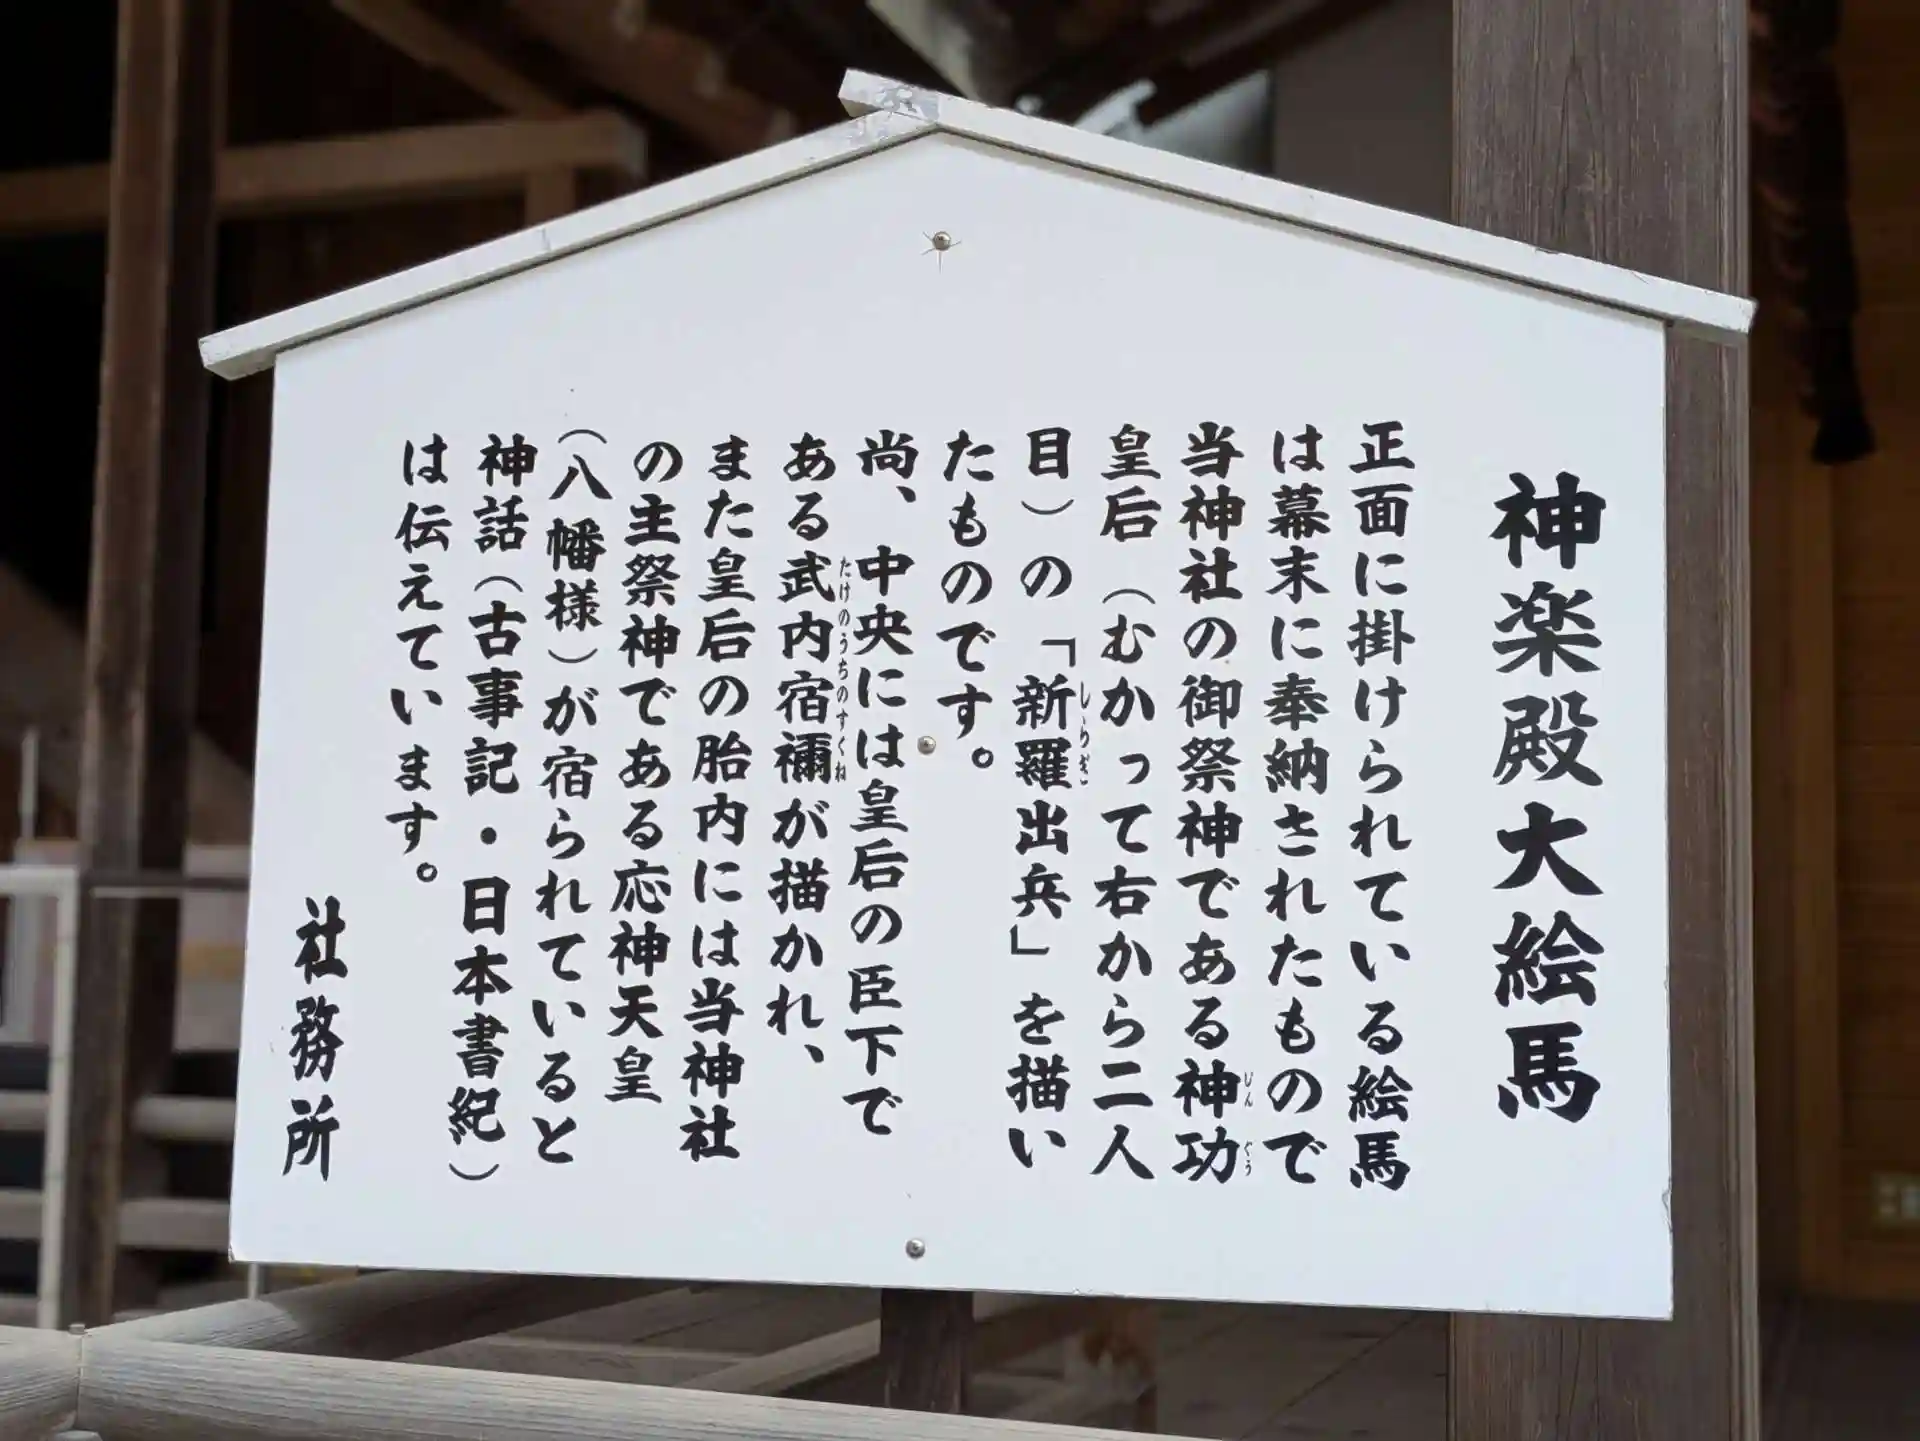 神楽殿大絵馬
正面に掛けられている絵馬
は幕末に奉納されたもので
当神社の御祭神である神功
じんぐう
皇后（むかって右から二人
目）の「新羅出兵」を描い
しらぎ
たものです。
尚、中央には皇后の臣下で
ある武内宿禰が描かれ、
たけのうちのすくね
また皇后の胎内には当神社
の主祭神である応神天皇
（八幡様）が宿られていると
神話（古事記・日本書紀）
は伝えています。
社務所